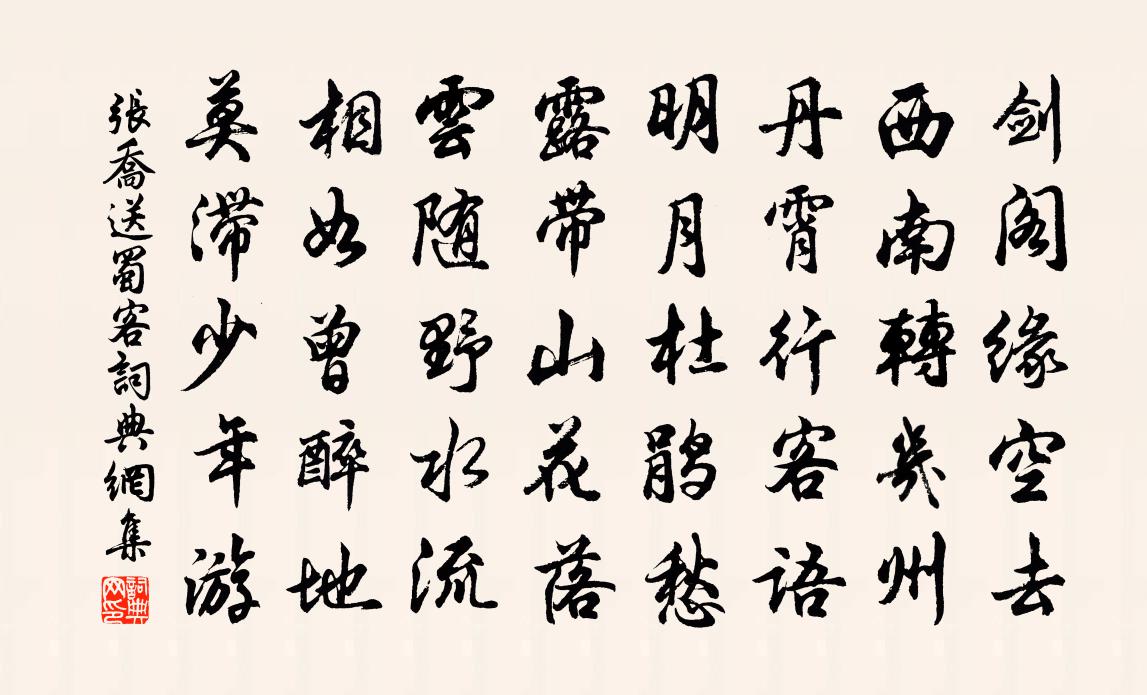 剑阁缘空去
西南轉幾州
丹霄行客語
明月杜鹃愁
露带山花落
雲随野水流
相如曾醉地
莫滞少年游
張喬送蜀客詞典網集
詞典
网印